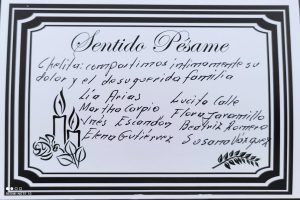 Sentido Pésame
Chelita: compartimos intimamente su
dolor y el de su querida familia
Lía Arias Lucila Calle
Martha Carpio Flora Jaramillo
Inés Escandon Beatriz Romero
Elena Gutiérrez Susana Vázquez